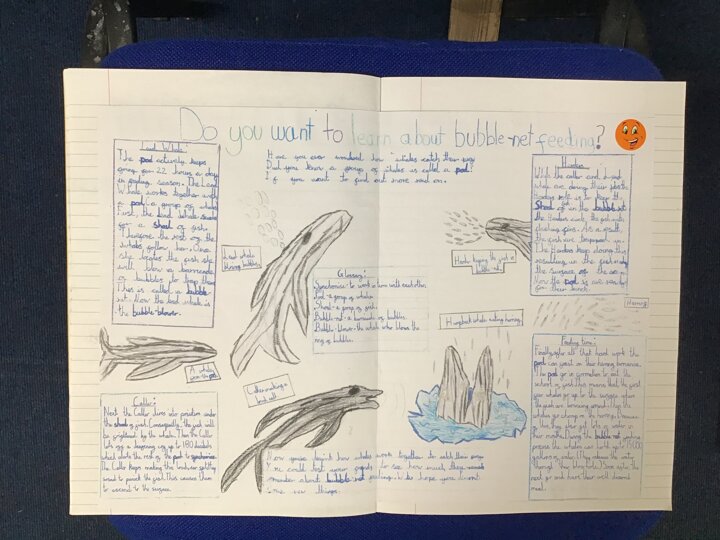 Do you want to learn about bubble-net feeding?
Have you ever wondered how whales catch their prey
Did you know a group of whales is called a pod?
If you want to find out more read on.
Lead Whale:
The pod actively keeps
going for 22 hours a day
in feeding season. The Lead
Whale works together with
a pod (a group of whales
First, the lead whale
for a shoal of fish.
Therefore the rest of the
whales follow her. Once
she locates the fish she
will blow a barricade
of bubbles to trap them
This is called a bubble
net. Now the lead whale is
the bubble-blower.
Lead whale
blowing bubbles
A whale
from the pod
Caller:
Next the Caller dives into position under
the shoal of fish. Consequently, the fish will
be frightened by the whale. Then the Caller
lets off a deafening cry up to 180 decibels
which alerts the rest of the pod to synchronise.
The Caller keeps making this
would to permit the fish. This causes them
to ascend to the surface.
Caller making a
loud call
Glossary:
Synchronise- to work in time with each other.
Pod- a group of whales
Shoal- a group of fish.
Bubble-net- a barricade of bubbles.
Bubble-blower- the whale who blows the
ring of bubbles.
Now you've learnt how whales work together to catch their prey
You could test your friends to see how much they
remember about bubble net feeding. We hope you learnt
some new things.
Herder
While the caller and lead
whale are doing their jobs the
Herders role is to keep the
Shoal of fish in the bubble net
the Herders
flashing fins. As a result,
the fish are trapped in.
The Herders keep doing this
resulting in the fish
the surface of the
Now the pod is
for their lunch.
Herder keeping the fish in
bubble net
Herring
Humpback whales eating herring
Feeding time:
Finally after all that hard work the
pod can feast on their herring bonanza.
The pod go in formation to eat the
school of fish. This means that the first
few whales go up to the surface where
the fish are bouncing around. Then the
whales go chomp on the herring. Because
of this, they also get lots of water in
their mouths. During the bubble net feeding
process the whales can
gallons of water. (They release the water
through their blow hole.) Soon
next go and have their well deserved
meal.